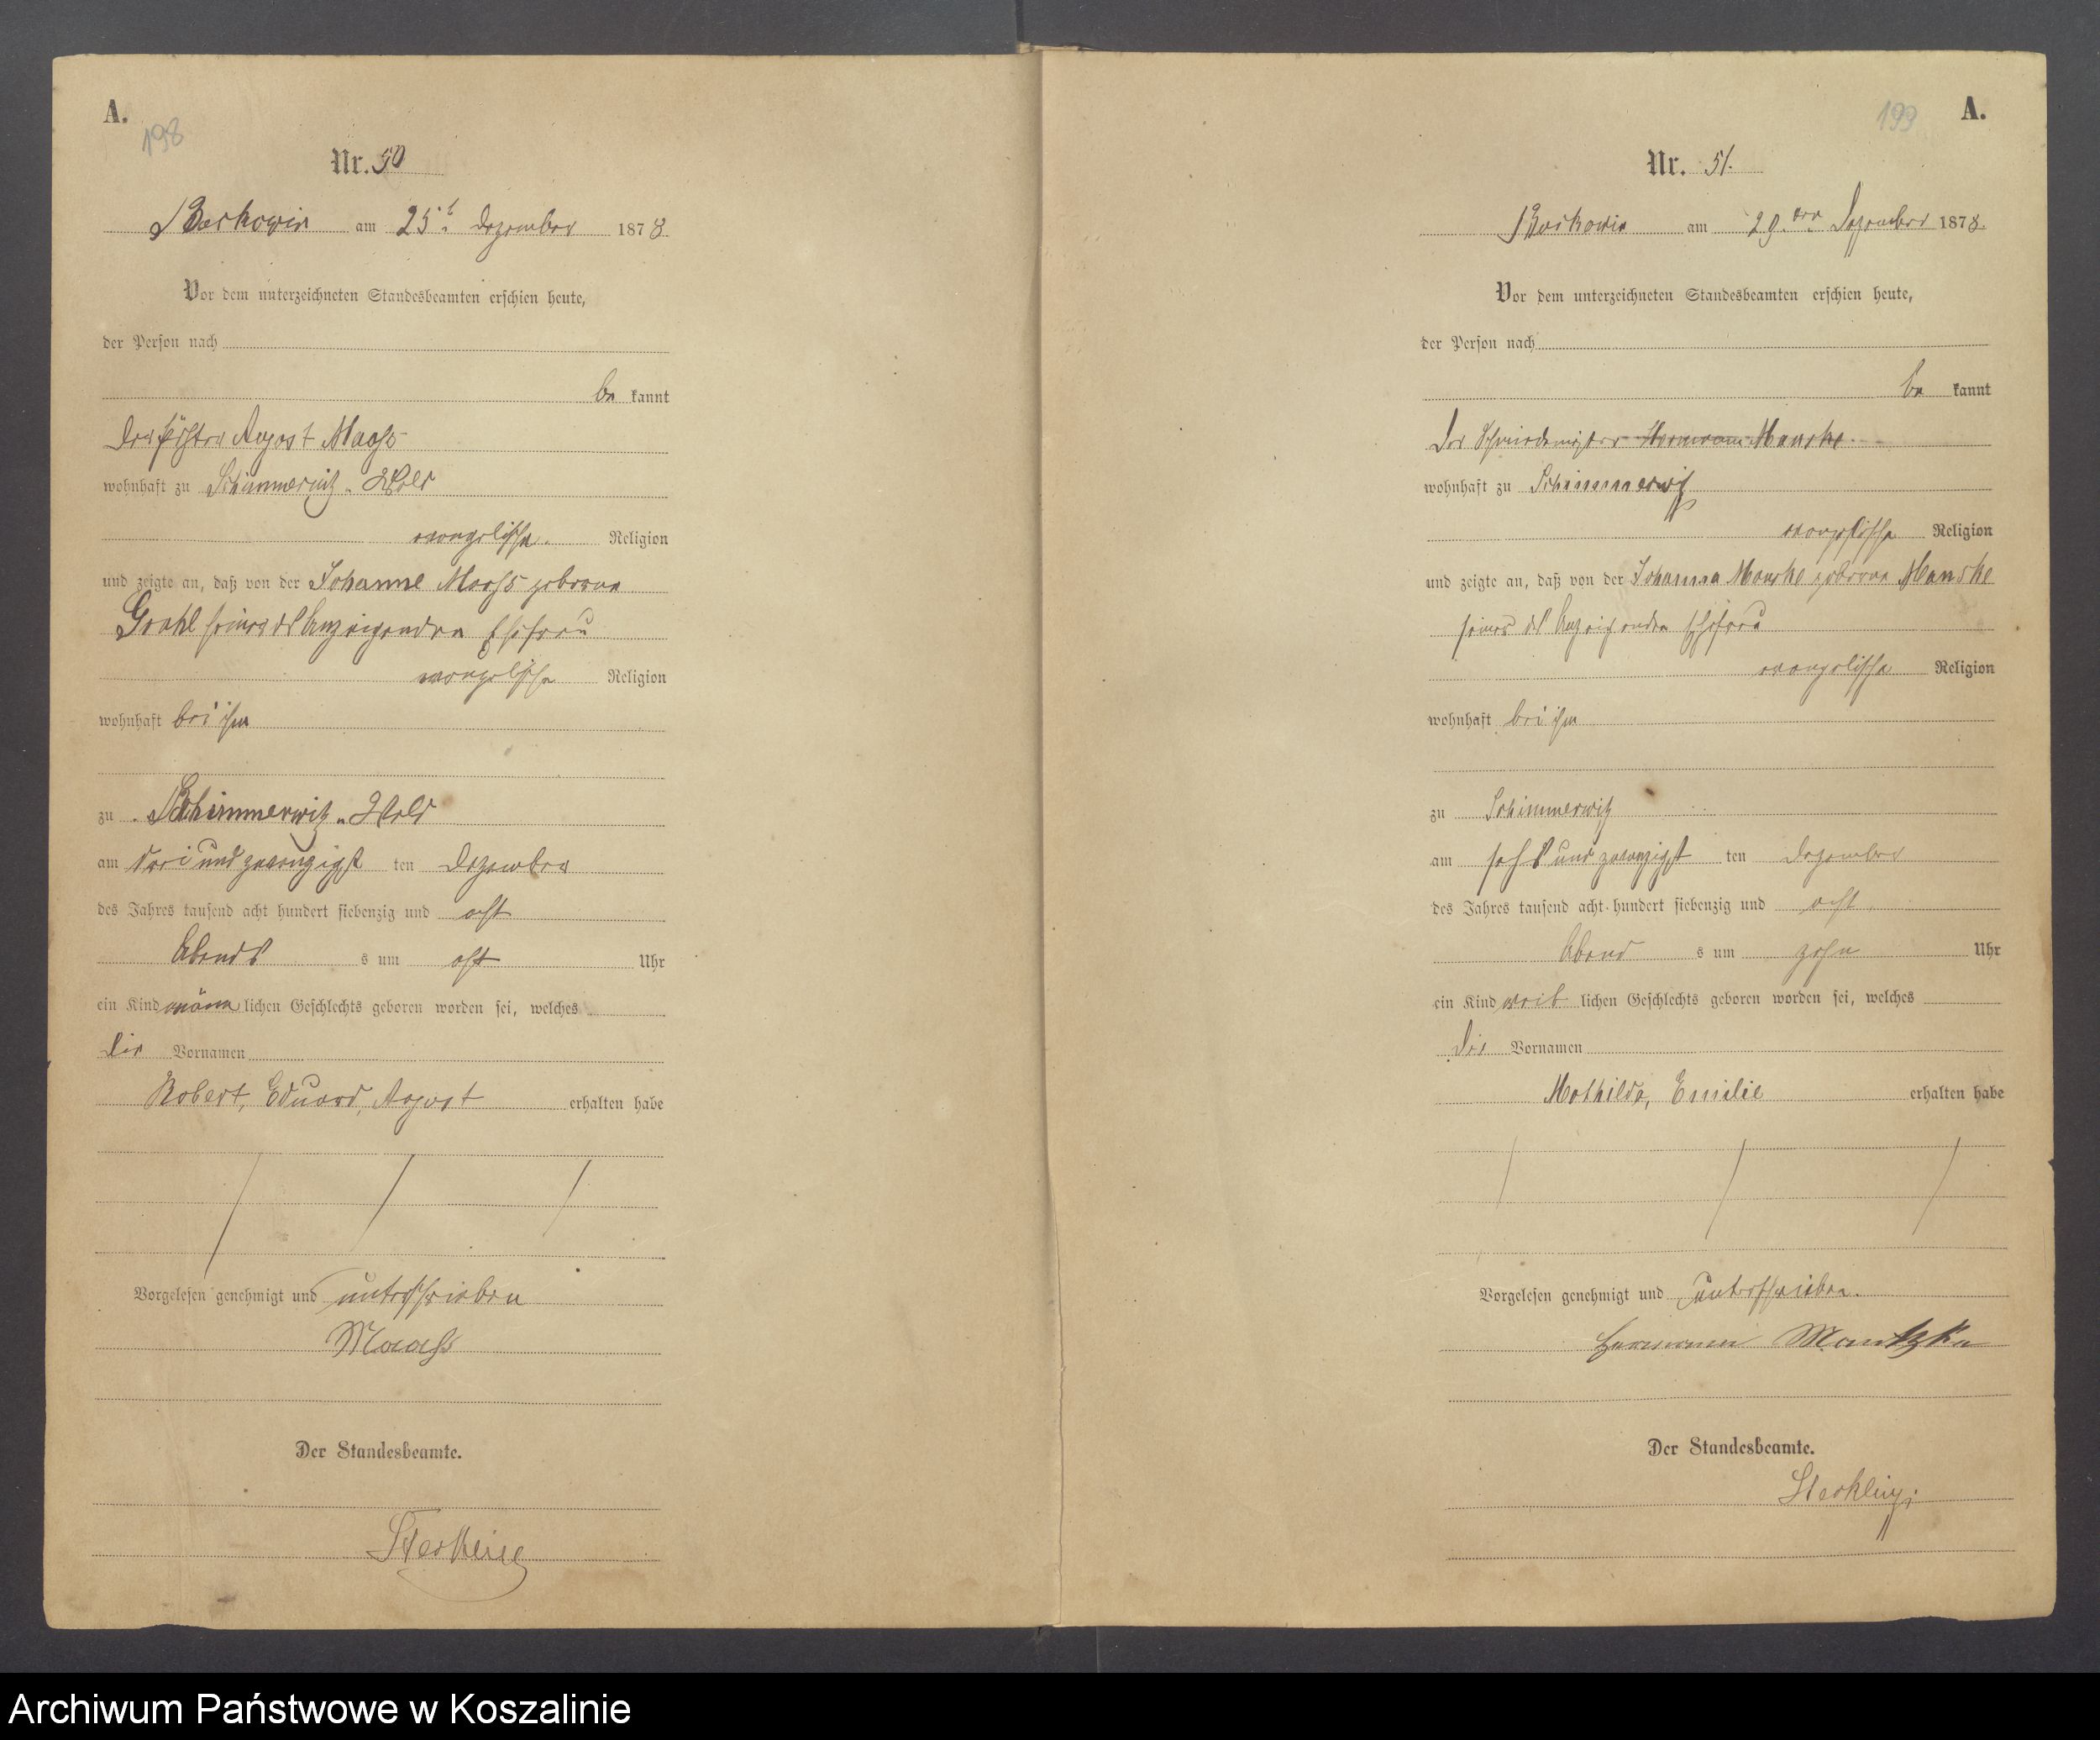 A.
198
Nr. 50
Beckowin am 25t Dezember 1878.
Vor dem unterzeichneten Standesbeamten erschien heute,
der Person nach
be kannt
Der Förster August Maaß
wohnhaft zu Schimmerwitz-Wald
evangelische Religion
und zeigte an, daß von der Johanne Maaß geborene
seiner des Anzeigenden Ehefrau
evangelische Religion
wohnhaft bei ihm
zu Schimmerwitz-Wald
am drei und zwanzigst ten Dezember
des Jahres tausend acht hundert siebenzig und acht
Abends s um acht Uhr
ein Kind männ lichen Geschlechts geboren worden sei, welches
die Vornamen
Robert, Eduard, August erhalten habe
Vorgelesen genehmigt und unterschrieben
Maaß
Der Standesbeamte.
A.
199
Nr. 51.
am 29ten Dezember 1878.
Vor dem unterzeichneten Standesbeamten erschien heute,
der Person nach
be kannt
Der Schmiedemeister Hermann Manske
wohnhaft zu Schimmerwitz
evangelische Religion
und zeigte an, daß von der Johanna Manske geborene Manske
seiner des Anzeigenden Ehefrau
evangelische Religion
wohnhaft bei ihm
zu Schimmerwitz
am sechs und zwanzigst ten Dezember
des Jahres tausend acht hundert siebenzig und acht
Abend s um zehn Uhr
ein Kind weib lichen Geschlechts geboren worden sei, welches
die Vornamen
Mathilde, Emilie erhalten habe
Vorgelesen genehmigt und unterschrieben.
Hermann Mantzke
Der Standesbeamte.
Archiwum Państwowe w Koszalinie